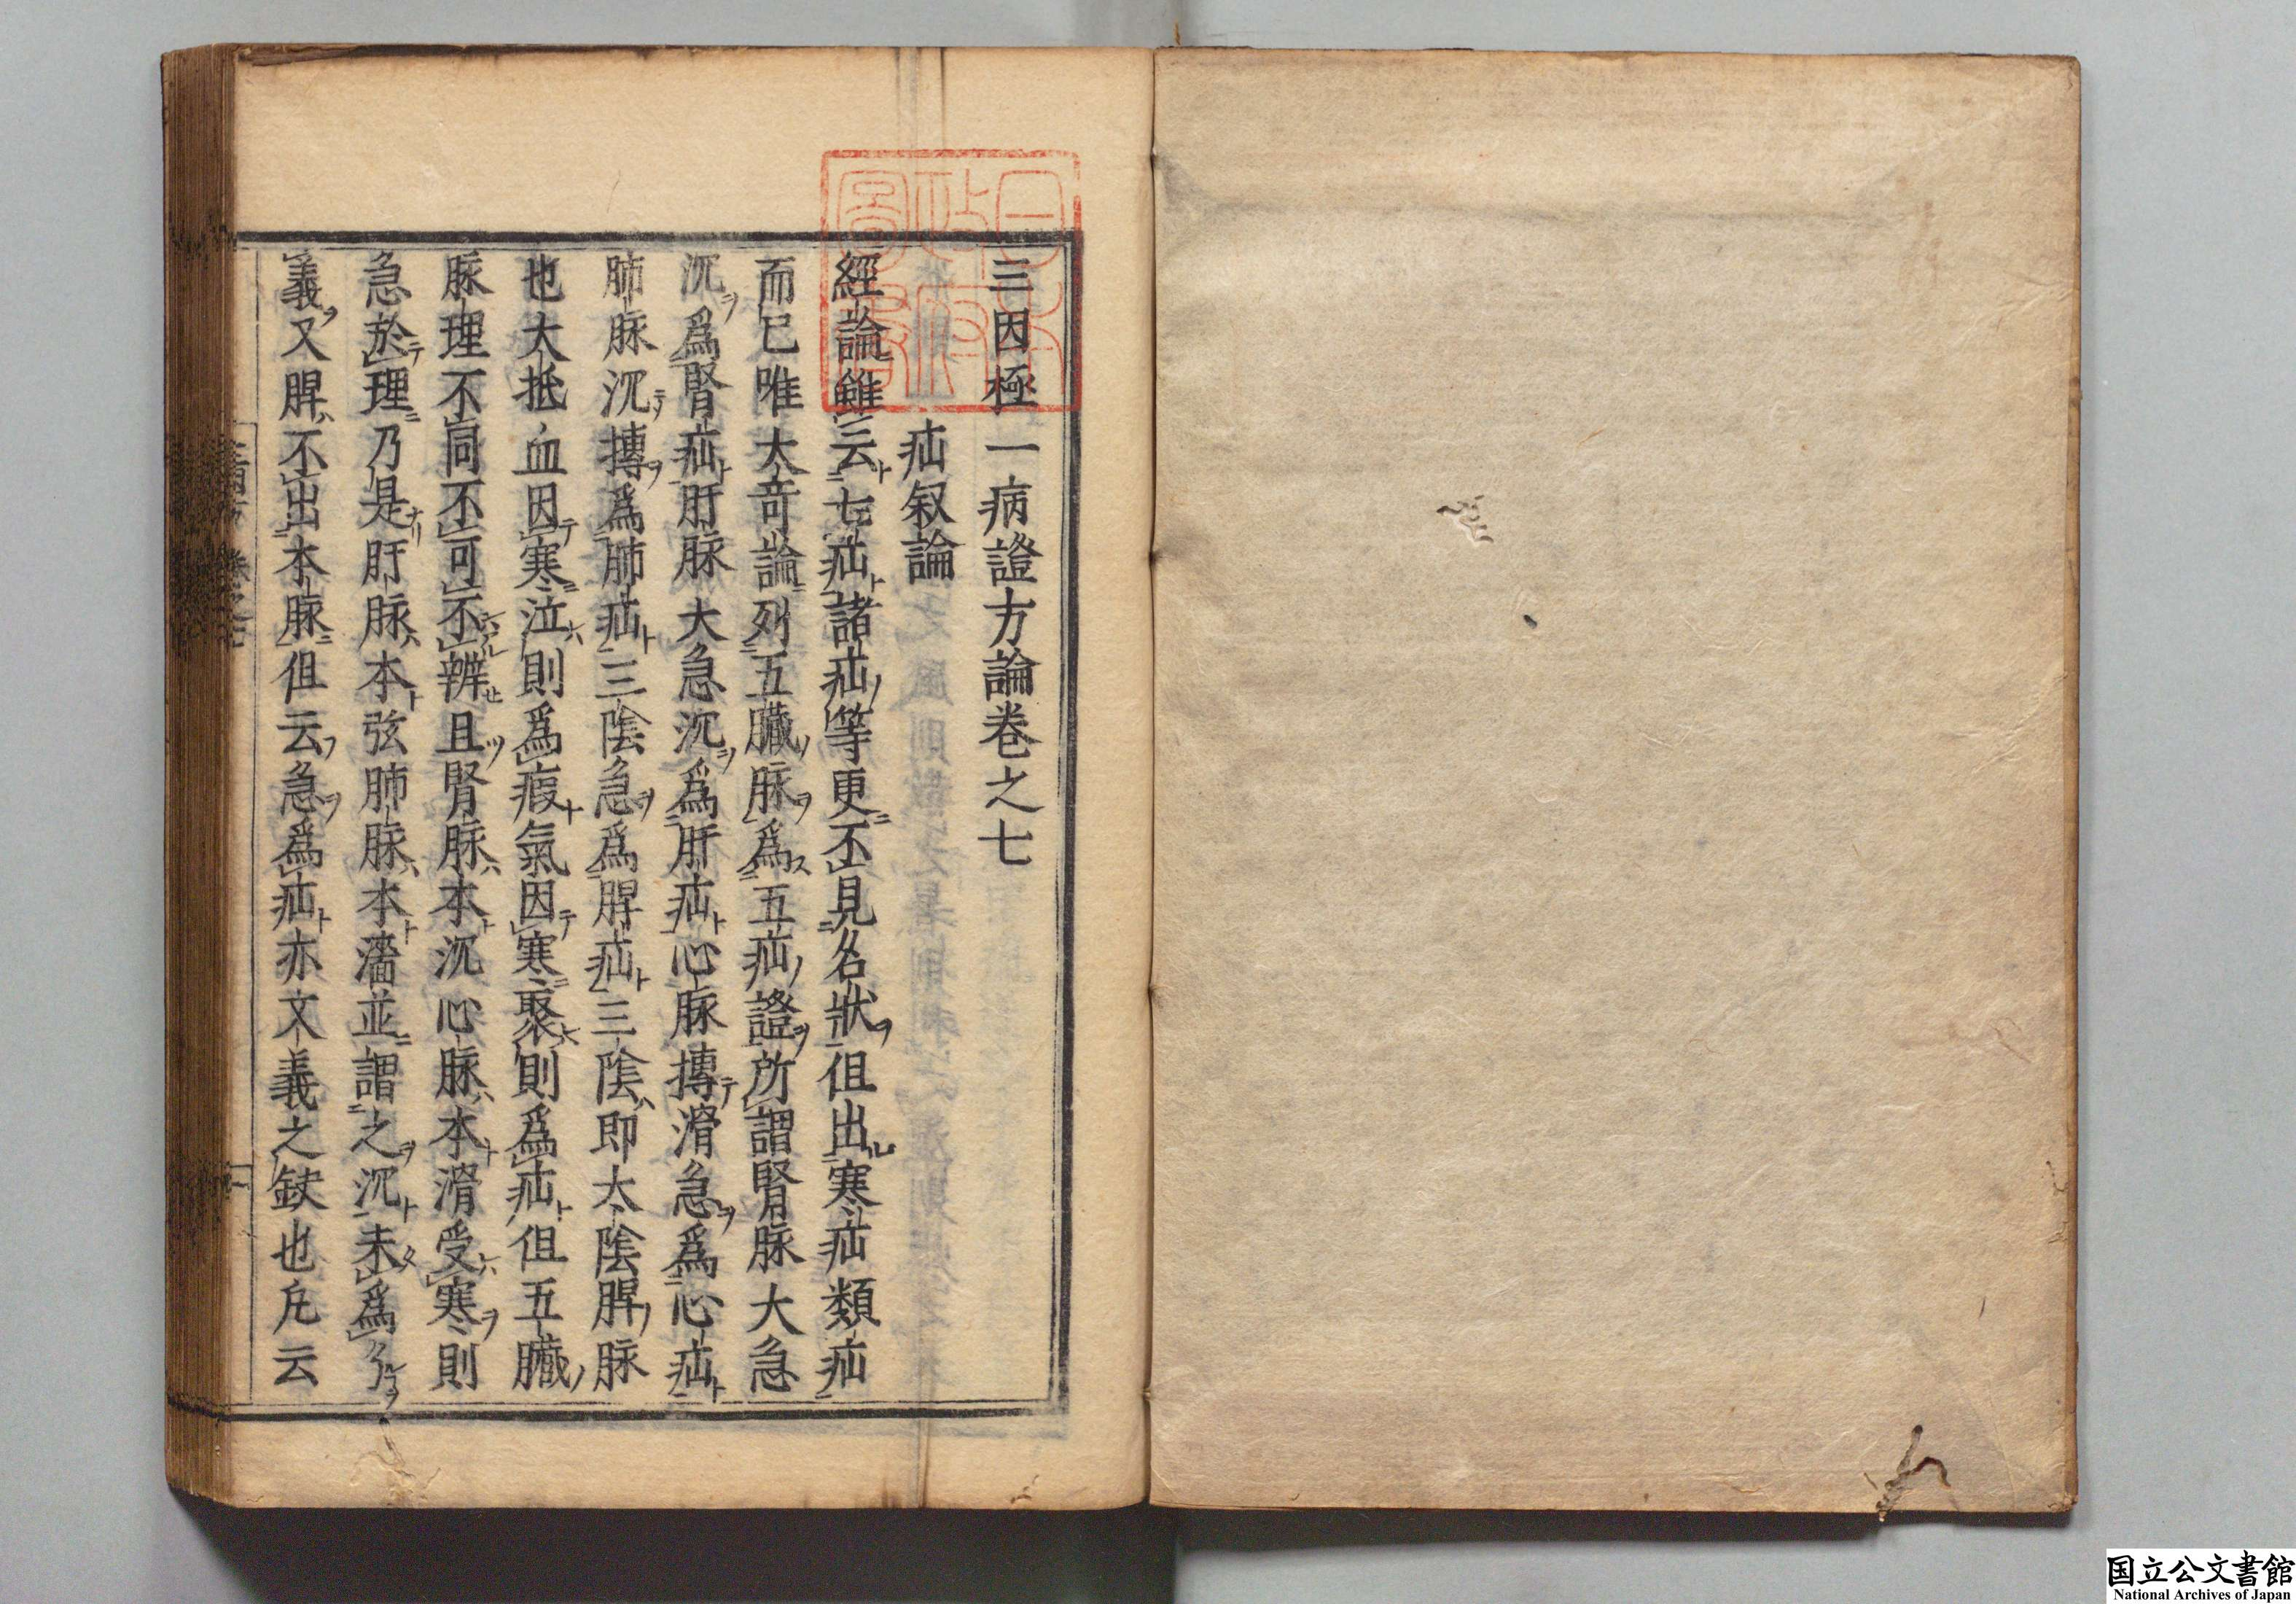 三因極一病證方論卷之七
疝叙論
經論雖云七疝諸疝等更不見名狀但出寒疝㿗疝
而已唯大奇論列五臟脉爲五疝證所謂腎脉大急
沉爲腎疝肝脉大急沉爲肝疝心脉摶滑急爲心疝
肺脉沉摶爲肺疝三陰急爲脾疝三陰即太陰脾脉
也大抵血因寒泣則爲瘕氣因寒聚則爲疝但五臟
脉理不同不可不辨且腎脉本沉心脉本滑受寒則
急於理乃是肝脉本弦肺脉本濇並謂之沉未爲了
義又脾不出本脉但云急爲疝亦文義之缺也凡云
三因方 卷之七
国立公文書館
National Archives of Japan